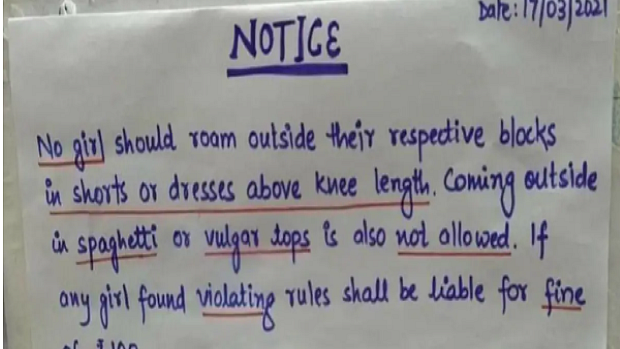 Date: 17/03/2021
NOTICE
No girl should roam outside their respective blocks
in shorts or dresses above knee length. Coming outside
in spaghetti or vulgar tops is also not allowed. If
any girl found violating rules shall be liable for fine
of ₹100